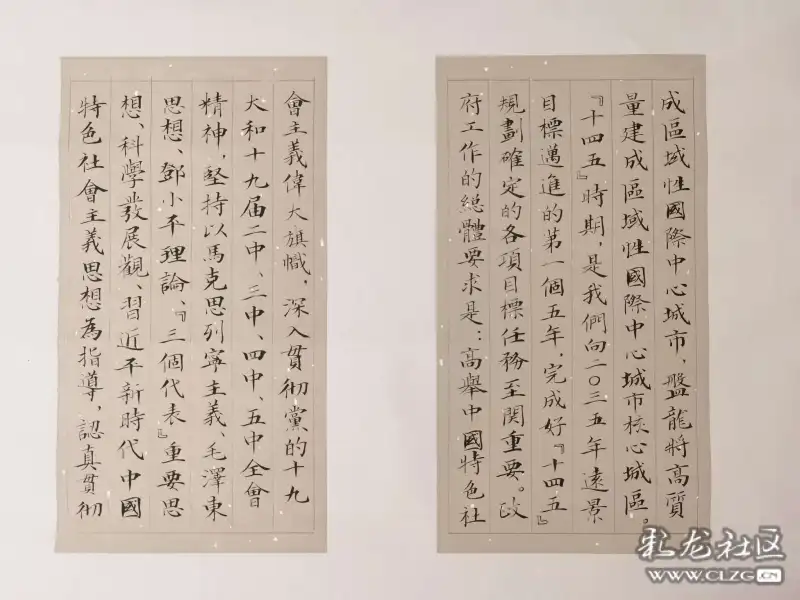 成區域性國際中心城市，盤龍將高質
量建成區域性國際中心城市核心城區。
『十四五』時期，是我們向二〇三五年遠景
目標邁進的第一個五年，完成好『十四五』
規劃確定的各項目標任務至関重要。政
府工作的總體要求是：高舉中國特色社
會主義偉大旗幟，深入貫彻黨的十九
大和十九届二中、三中、四中、五中全會
精神，堅持以馬克思列寧主義、毛澤東
思想、鄧小平理論、『三個代表』重要思
想、科學發展觀、習近平新時代中國
特色社會主義思想為指導，認真貫彻
彩龙社区
WWW.CLZG.CN